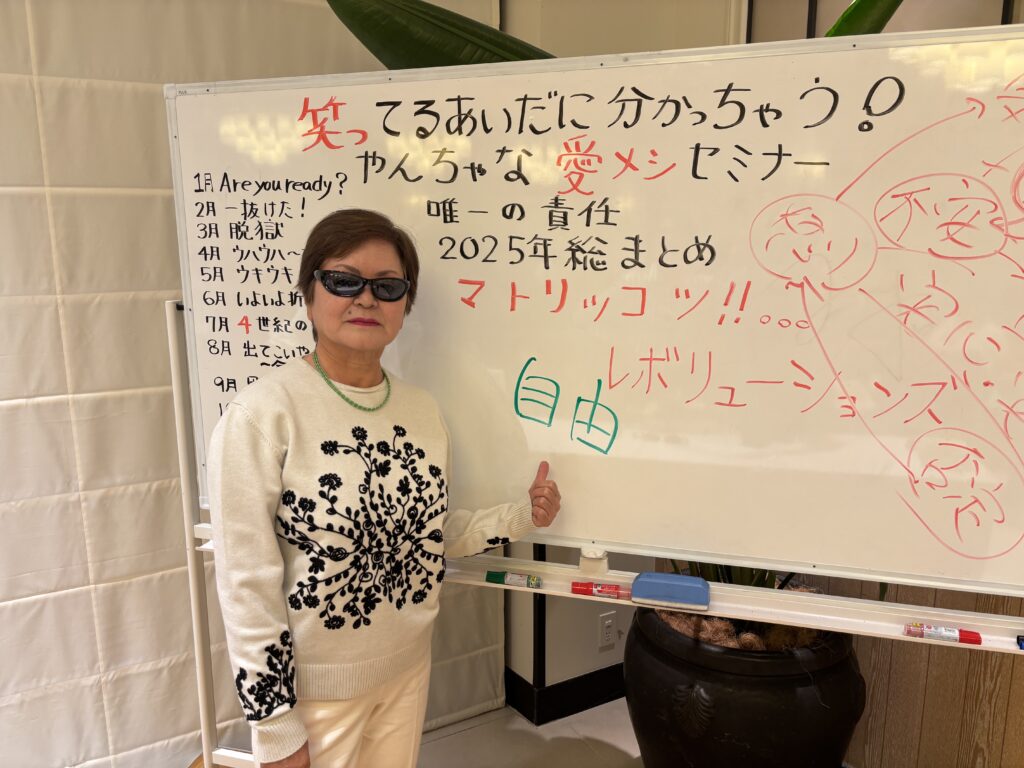 笑ってるあいだに分かっちゃう!
やんちゃな愛メシセミナー
唯一の責任
2025年総まとめ
マトリッコツ!!...
レボリューションズ
自由
1月 Are you ready?
2月 一抜けた!
3月 脱獄
4月 ウハウハ〜
5月 ウキウキ
6月 いよいよ折
7月 4世紀の
8月 出てこいや
9月
不安